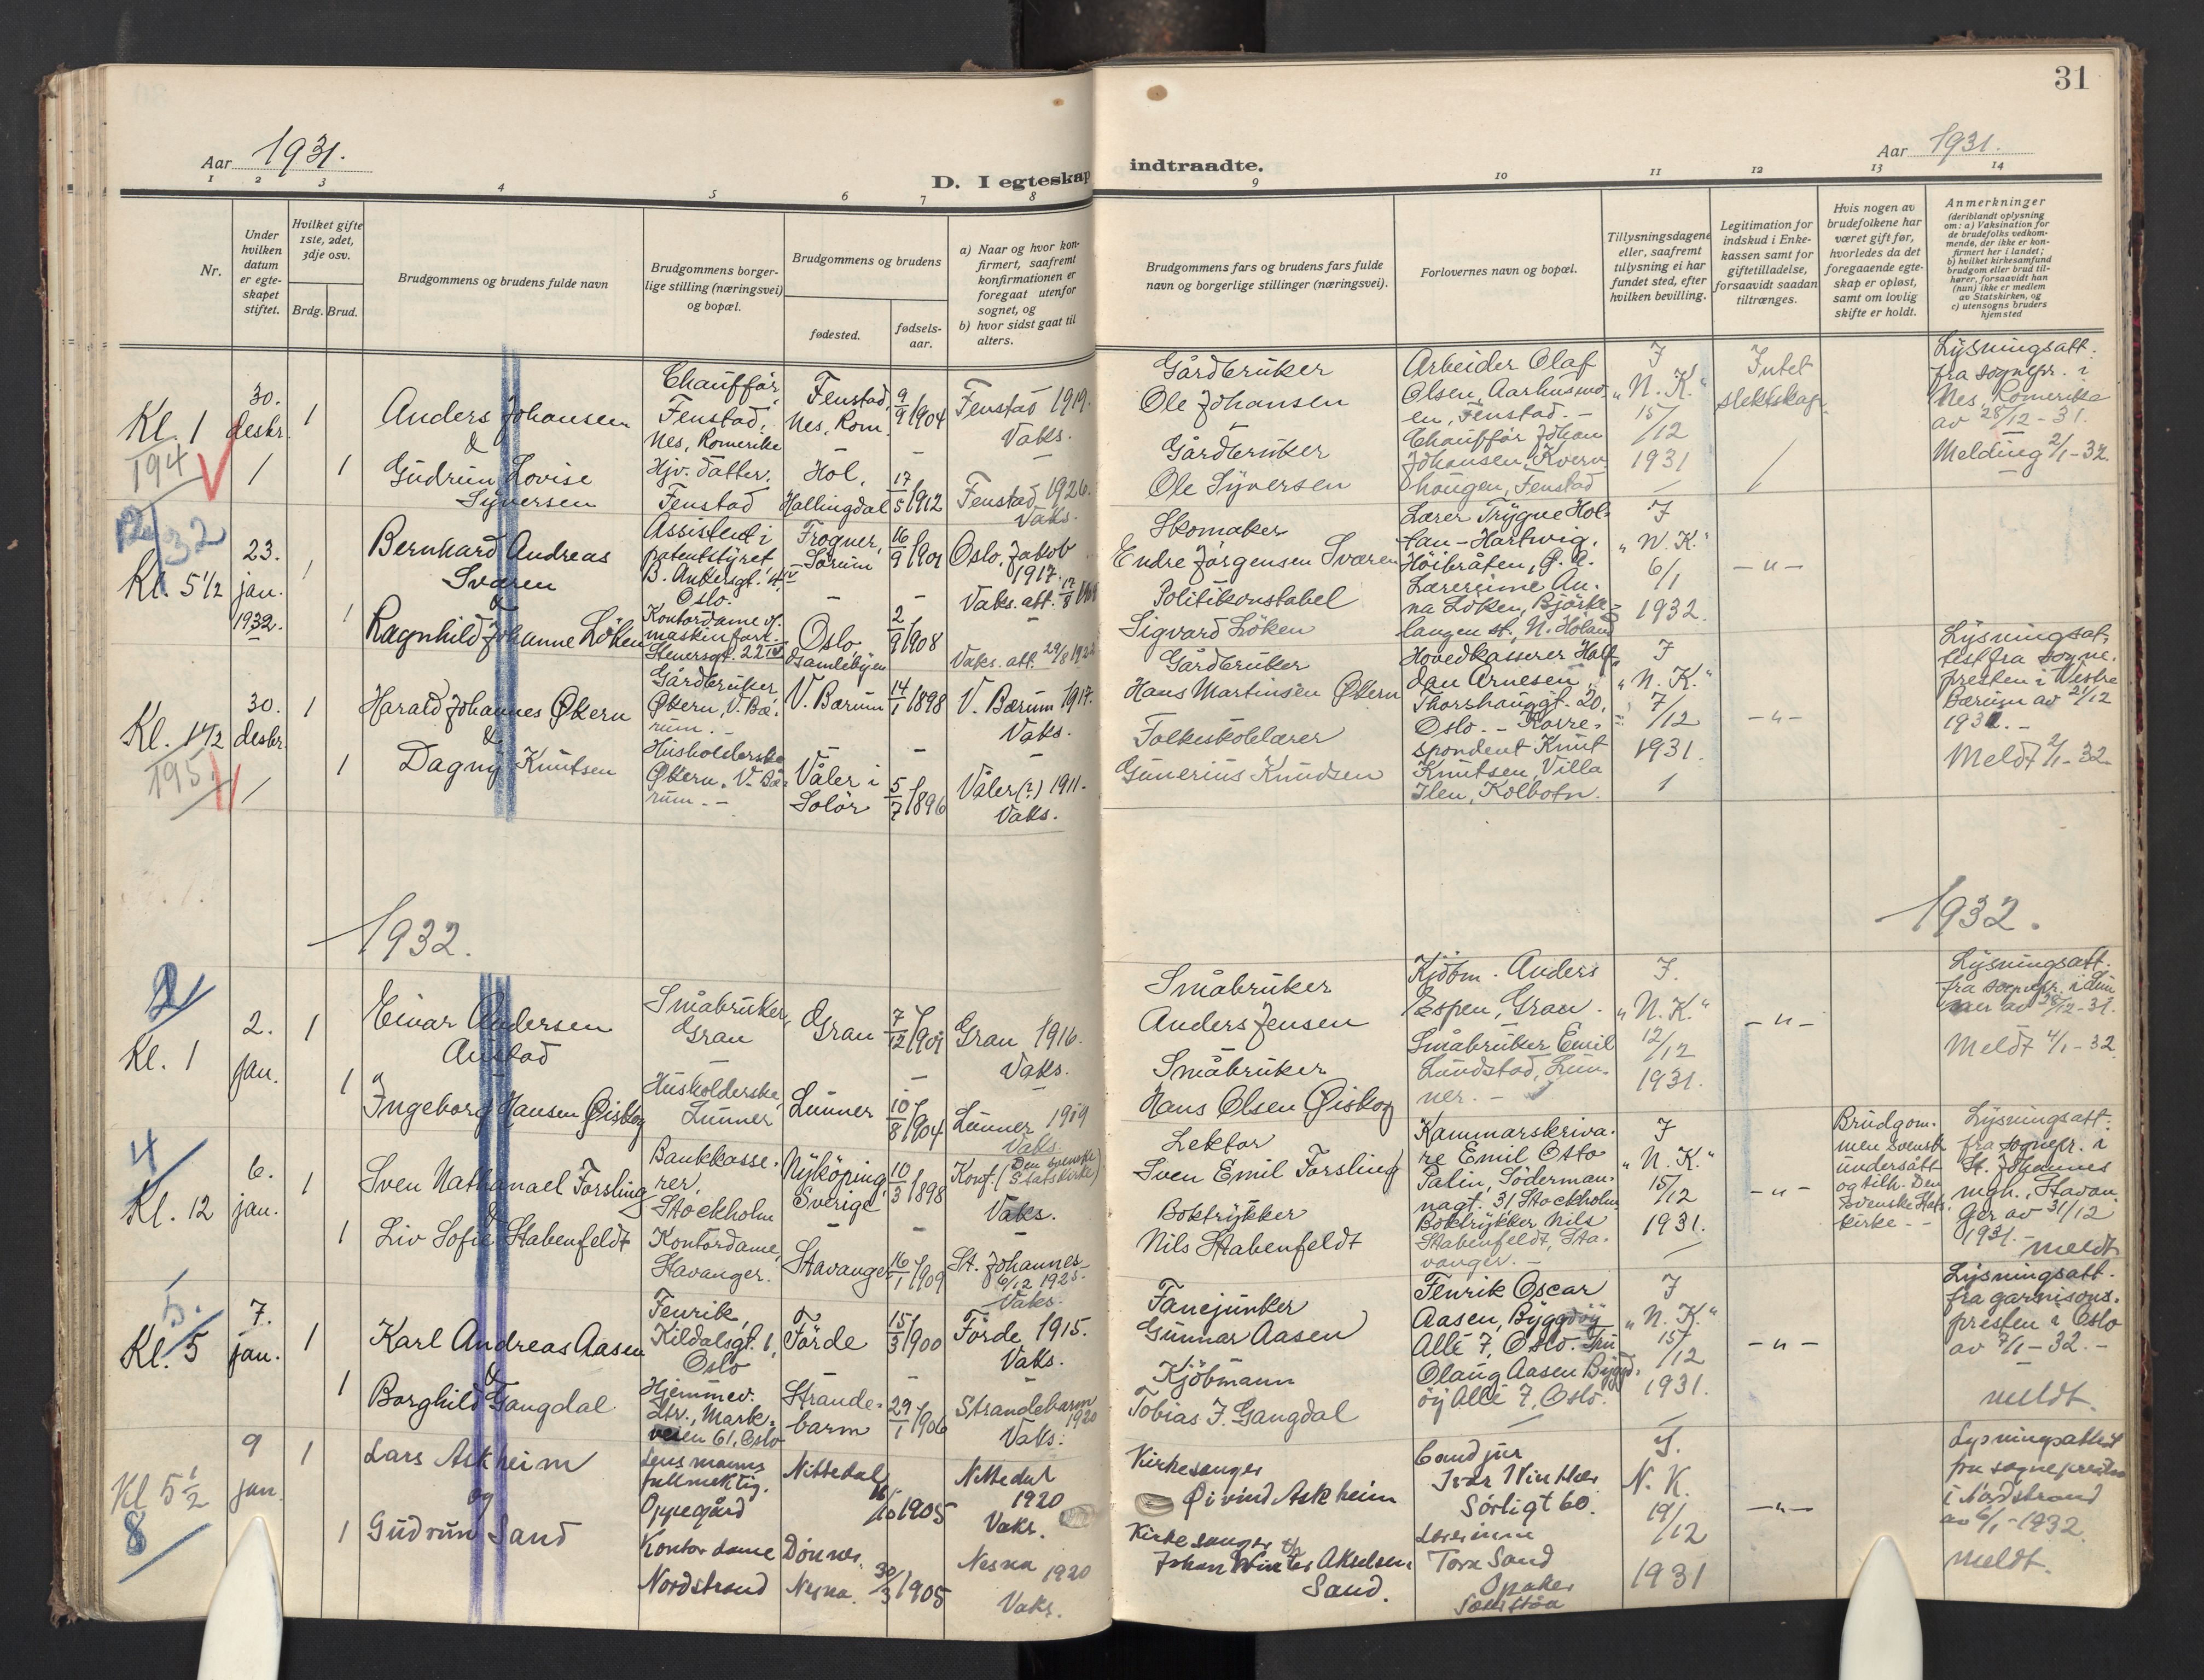 31
Aar 1931.
D. I egteskap
indtraadte.
Aar 1931.
1 2 3 4 5 6 7 8
9 10 11 12 13 14
Nr.
Under
hvilken
datum
er egte-
skapet
stiftet.
Hvilket gifte
1ste, 2det,
3dje osv.
Brdg. Brud.
Brudgommens og brudens fulde navn
Brudgommens borger-
lige stilling (næringsvei)
og bopæl.
Brudgommens og brudens
fødested.
fødsels-
aar.
a) Naar og hvor kon-
firmert, saafremt
konfirmationen er
foregaat utenfor
sognet, og
b) hvor sidst gaat til
alters.
Brudgommens fars og brudens fars fulde
navn og borgerlige stillinger (næringsvei).
Forlovernes navn og bopæl.
Tillysningsdagene
eller, saafremt
tillysning ei har
fundet sted, efter
hvilken bevilling.
Legitimation for
indskud i Enke-
kassen samt for
giftetilladelse,
forsaavidt saadan
tiltrænges.
Hvis nogen av
brudefolkene har
været gift før,
hvorledes da det
foregaaende egte-
skap er opløst,
samt om lovlig
skifte er holdt.
Anmerkninger
(deriblandt oplysning
om: a) Vaksination for
de brudefolks vedkom-
mende, der ikke er kon-
firmert her i landet;
b) hvilket kirkesamfund
brudgom eller brud til-
hører, forsaavidt han
(hun) ikke er medlem
av Statskirken, og
c) utensogns bruders
hjemsted
Kl. 1
194
30.
desbr.
1
1
Anders Johansen
&
Gudrun Lovise
Syversen
Chauffør,
Fenstad,
Nes, Romerike
Hjv. datter.
Fenstad
Fenstad,
Nes, Rom.
Hol,
Hallingdal
9/9 1904
17/5 1912
Fenstad 1919.
Vaks.
Fenstad 1926.
Vaks.
Gårdbruker
Ole Johansen
Gårdbruker
Ole Syversen
Arbeider Olaf
Olsen, Aarhusmo-
en, Fenstad. -
Chauffør Johan
Johansen, Kvern-
haugen, Fenstad
I
"N. K."
15/12
1931
Intet
slektskap.
Lysningsatt.
fra sognepr. i
Nes, Romerike
av 28/12-31.
Melding 2/1-32.
2/32
Kl. 5 1/2
23.
jan.
1932.
1
1
Bernhard Andreas
Sværen
&
Ragnhild Johanne Löken
Assistent i
patentstyret
B. Ankersgt. 4 IV
Oslo.
Kontordame v/
maskinforr.
Stenersgt. 22 IV
Frogner,
Sørum
Oslo,
Gamlebyen
16/9 1901
2/9 1908
Oslo, Jakob
1917.
Vaks. att. 29/8 1922
Skomaker
Endre Jørgensen Sværen
Politikonstabel
Sigvard Löken
Lærer Trygve Hol-
tan-Hartwig,
Høibråten, G. A.
Lærerinne An-
na Löken, Bjørke-
langen st., N. Höland
I
"N. K."
6/1
1932.
-"-
Kl. 1 1/2
195
30.
desbr.
1
1
Harald Johannes Økern
&
Dagny Knutsen
Gårdbruker
Økern, V. Bæ-
rum. -
Husholderske
Økern, V. Bæ-
rum. -
V. Bærum
Våler i
Solør
14/1 1898
5/7 1896
V. Bærum 1917.
Vaks.
Våler (?) 1911.
Vaks.
Gårdbruker
Hans Martinsen Økern
Folkeskolelærer
Gunerius Knudsen
Hovedkasserer Half-
dan Arnesen,
Thorshauggt. 20,
Oslo. - Korre-
spondent Knut
Knutsen, Villa
Ilen, Kolbotn.
I
"N. K."
7/12
1931.
-"-
Lysningsat-
test fra sogne-
presten i Vestre
Bærum av 21/12
1931. -
Meldt 2/1-32.
1932.
1932.
2/
Kl. 1
2.
jan.
1
1
Einar Andersen
Anstad
Ingeborg Hansen Øiskog
Småbruker,
Gran
Husholderske,
Lunner
Gran
Lunner
7/12 1901
10/8 1904
Gran 1916.
Vaks.
Lunner 1919
Vaks.
Småbruker
Anders Jensen
Småbruker
Hans Olsen Øiskog
Kjøbm. Anders
Espen, Gran.
Småbruker Emil
Lundstad, Lun-
ner. -
I.
"N. K."
12/12
1931.
-"-
Lysningsatt.
fra sognepr. i Lun-
ner av 28/12-31.
Meldt 4/1-32
4
Kl. 12
6.
jan.
1
1
Sven Nathanael Forsling
&
Liv Sofie Stabenfeldt
Bankkasse-
rer,
Stockholm
Kontordame,
Stavanger.
Nyköping,
Sverige
Stavanger
10/3 1898
16/1 1909
Konf. (Den svenske
Statskirke)
Vaks.
St. Johannes
6/12 1925.
Vaks.
Lektor
Sven Emil Forsling
Boktrykker
Nils Stabenfeldt
Kammarskriva-
re Emil Osto
Palin, Söderman-
nagt. 31, Stockholm
Boktrykker Nils
Stabenfeldt, Sta-
vanger. -
I
"N. K."
15/12
1931.
-"-
Brudgom-
men svensk
undersått
og tilh. Den
svenske stats-
kirke. -
Lysningsatt.
fra sognepr. i
St. Johannes
mgh., Stavan-
ger av 31/12
1931. -
meldt
5.
Kl. 5
7.
jan.
1
1
Karl Andreas Aasen
&
Borghild Gangdal
Fenrik,
Kildalsgt. 1,
Oslo
Hjemmev.
dtr., Mark-
veien 61, Oslo
Förde
Strande-
barm
15/3 1900
29/1 1906
Förde 1915.
Vaks.
Strandebarm
1920
Vaks.
Fanejunker
Gunnar Aasen
Kjöbmann
Tobias J. Gangdal
Fenrik Oscar
Aasen, Bygdöy
Allé 7, Oslo. Fru
Olaug Aasen Bygd-
öy Allé 7, Oslo.
I
"N. K."
15/12
1931.
-"-
Lysningsatt.
fra garnisons-
presten i Oslo
av 7/1-32. -
meldt.
Kl 5 1/2
8
9
jan.
1
1
Lars Askheim
og
Gudrun Sand
Lensmanns
fullmektig.
Oppegård
Kontordame
Nordstrand
Nittedal
Dönnes,
Nesna.
1905
30/3 1905
Nittedal
1920
Vaks.
Nesna 1920
Vaks.
Kirkesanger
Øivind Askheim
Kirkesanger
Johan Winter Akselsen
Sand.
Cand jur
Ivar Winther
Sörligt 60.
Lærerinne
Tora Sand
Opaker
I.
N. K.
19/12
1931
-"-
Lysningsattest
fra sognepresten
i Nordstrand
av 6/1-1932.
meldt.